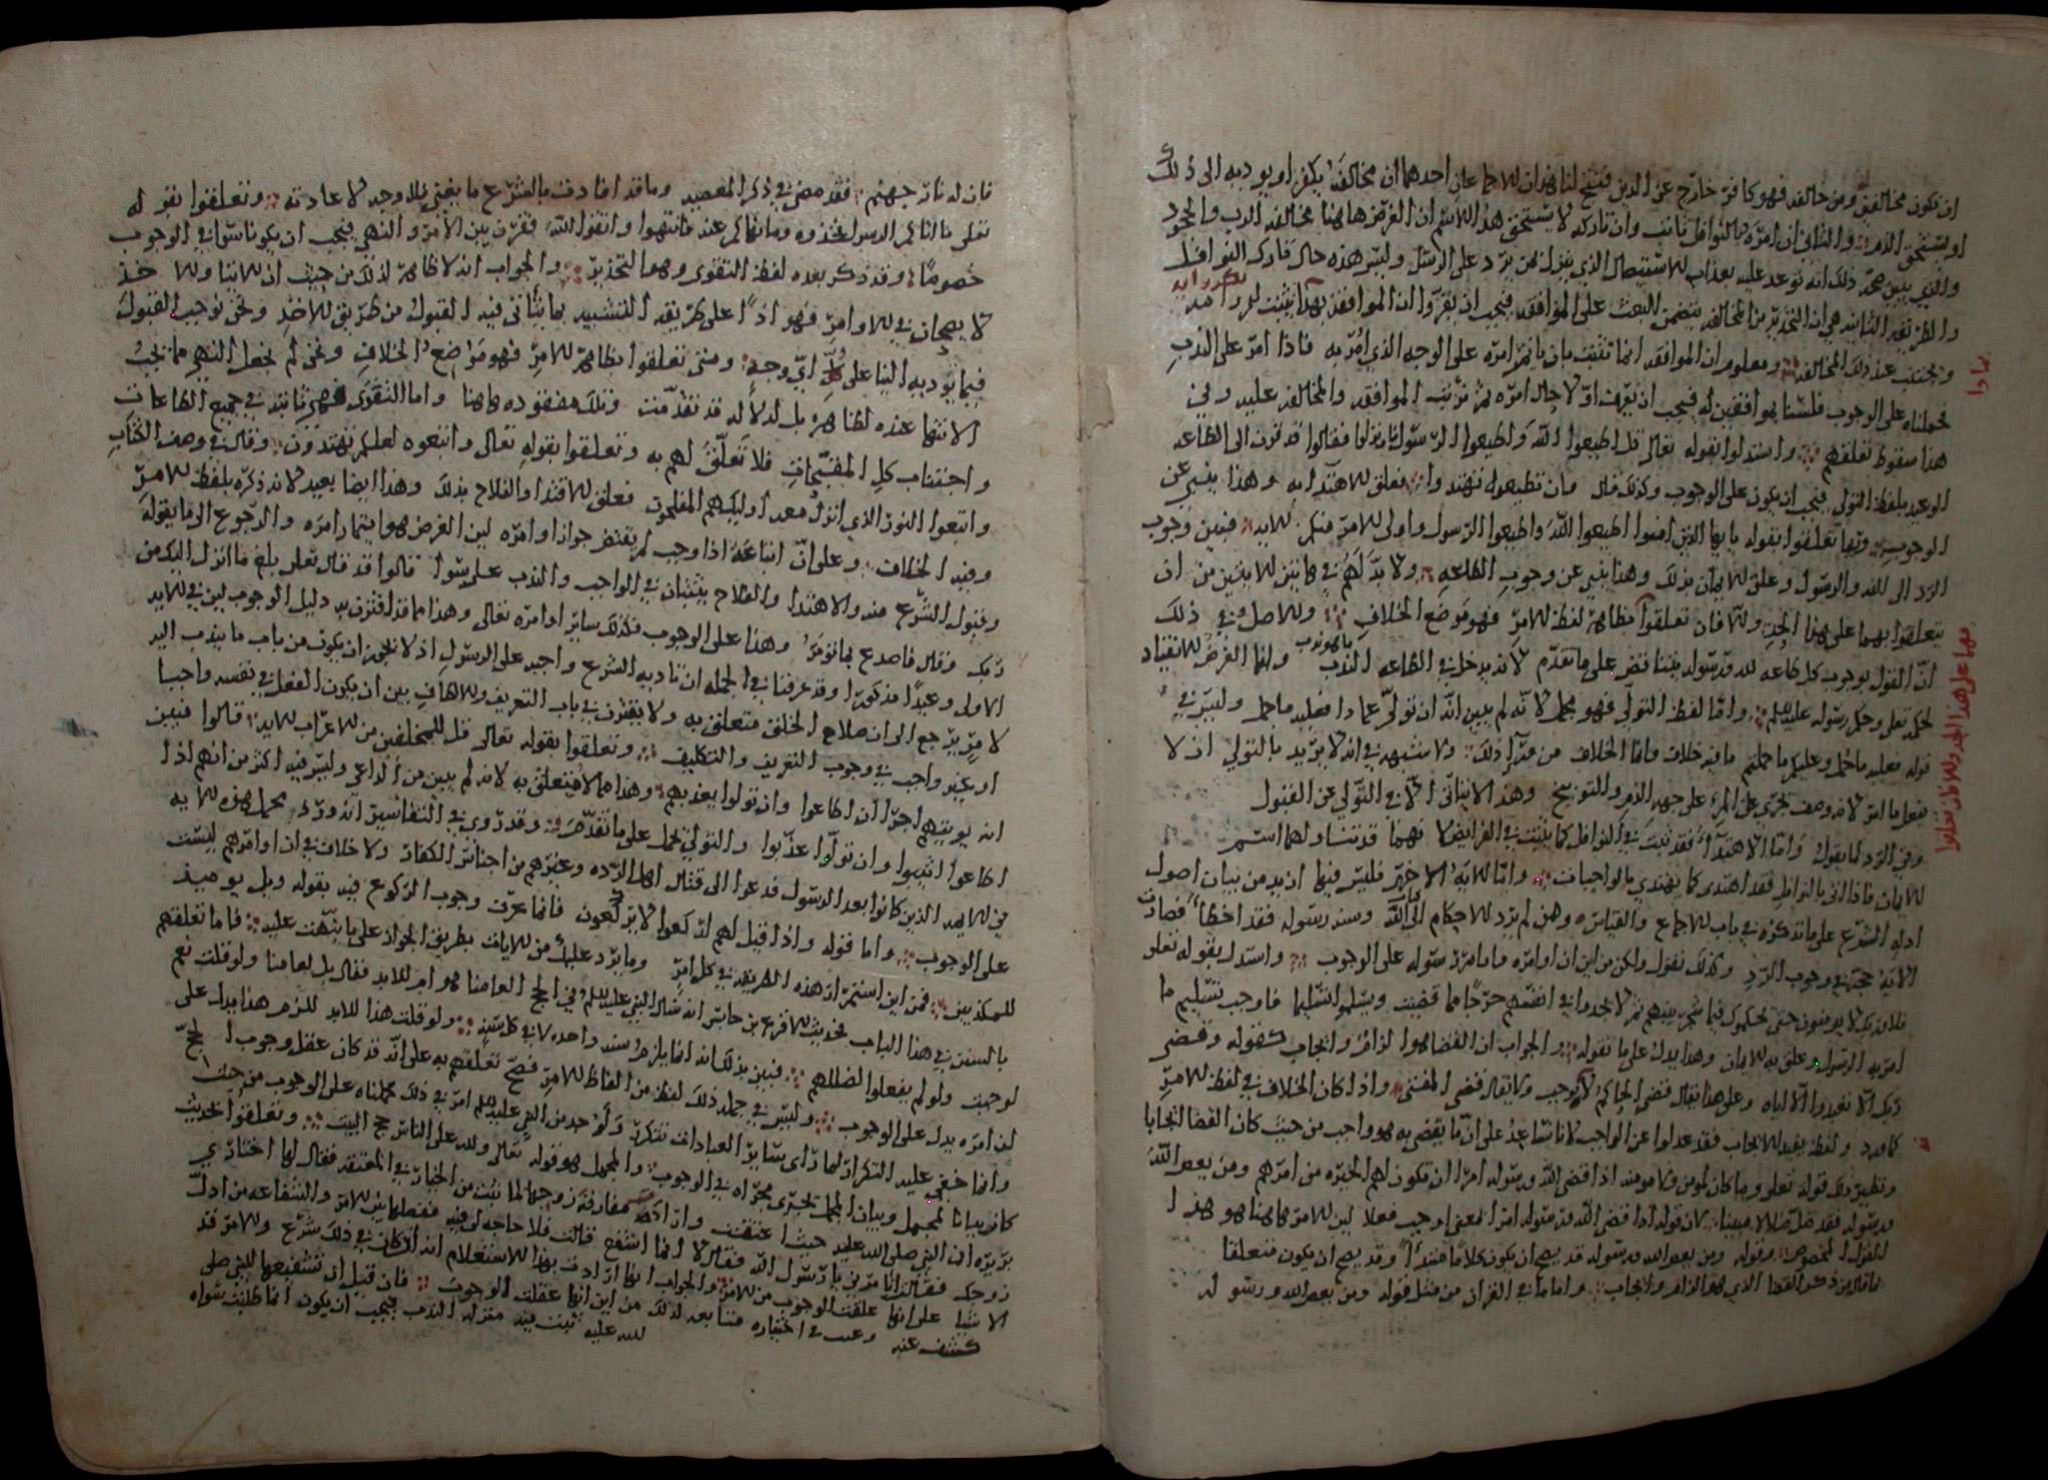 ان يكون مخالفين ومن خالف فهو كافر خارج عن الدين فيتسع لنا هذان للاجماعان احدهما ان مخالفه يكفر او يوديه الى ذلك
او يستحق الذم والثاني ان امره بالنوافل ثابت وان تاركه لا يستحق هذا الاسم ان الغرض هاهنا مخالفه الرب والجحود
والذي يبين صحة ذلك انه توعد عليه بعذاب الاستيصال الذي ينزل بمن يرد على الرسل وليس هذه حال تارك النوافل
والطريقه الثانيه هي ان التحذير من المخالفه يتضمن البعث على الموافقه فيجب ان يقروا ان الموافقه بهذا يثبت لو راد
ويجتنب عند ذلك المخالفه ومعلوم ان الموافقه انما تثبت بان ياتمر امره على الوجه الذي امر به فاذا امر على الندب
فحملناه على الوجوب فلسنا بموافقين له فيجب ان يعرف اولا حال امره ثم ترتب الموافقه والمخالفه عليه وفي
هذا سقوط تعلقهم واستدلوا بقوله تعالى قل اطيعوا الله واطيعوا الرسول فان تولوا فقالوا قد قرن الى الطاعه
الوعيد بلفظ التولي فيجب ان يكون على الوجوب وكذلك قال وان تطيعوه تهتدوا فعلق للاهتدا به وهذا ينبي عن
الوجوب وربما تعلقوا بقوله يايها الذين امنوا اطيعوا الله واطيعوا الرسول واولى للامر منكم للايه فبين وجوب
الرد الى الله والرسول وعلق للايمان بذلك وهذا ينبي عن وجوب الطاعه ولا بد لهم في هاتين للايتين من ان
يتعلقوا بهما على هذا الحد وللا فان تعلقوا بظاهر لفظ للامر فهو موضع الخلاف وللاصل في ذلك
ان القول بوجوب كل طاعه لله ورسوله ينتقض على ما تقدم لانه يدخل في الطاعه الندب وانما الغرض للانقياد
لحكمه تعلى وحكم رسوله عليه السلم واما لفظ التولي فهو مجمل لانه لم يبين انه ان تولى عما ذا فعليه ما حمل وليس في
قوله فعليه ما حمل وعليكم ما حملتم ما فيه خلاف وانما الخلاف من ورآ ذلك ولا شبهه في انه لا يريد بالتولي ان لا
يفعل ما امر لانه وصف يجري على المرء على جهه الذم والتوبيخ وهذا لا يتاتى الا في التولي عن القبول
وفي الرد لما يقول واما الاهتدآ فقد ثبت في النوافل كما يثبت في الفرايض لانهما قد تناولهما اسم
للايمان فاذا اتى بالنوافل فقد اهتدى كما يهتدي بالواجبات واما للايه الاخير فليس فيها ازيد من بيان اصول
ادله الشرع على ما نذكره في باب للاجماع والقياس ومن لم يرد للاحكام الى كتاب الله وسنه رسوله فقد اخطا فصارت
الايه حجه في وجوب الرد وكذلك نقول ولكن من اين ان اوامره واوامر رسوله على الوجوب واستدل بقوله تعلى
فلا وربك لا يومنون حتى يحكموك فيما شجر بينهم ثم لا يجدوا في انفسهم حرجا مما قضيت ويسلموا تسليما فاوجب تسليم ما
امر به الرسول وعلق به للايمان وهذا يدل على ما نقوله والجواب ان القضا هو الزام وايجاب كقوله وقضى
ربك الا تعبدوا الا اياه وعلى هذا يقال قضى الحاكم لما يوجب ولا يقال قضى المفتي واذا كان الخلاف في لفظ للامر
ونظير ذلك قوله تعلى وما كان لمومن ولا مومنه اذا قضى الله ورسوله امرا ان تكون لهم الخيره من امرهم ومن يعص الله
ورسوله فقد ضل ضلالا مبينا لان قوله اذا قضى الله ورسوله امرا المعني اوجب فعلا لين للامر هاهنا هو هذا
القول المخصوص وقوله ومن يعص الله ورسوله قد يصح ان يكون كلاما مبتدأ وقد يصح ان يكون متعلقا
بما قال من ذكر القضا الذي هو الزام وايجاب واما ما في القران من مثل قوله ومن يعص الله ورسوله
بها على هذا الحد وللا فان تعلقوا
فان له نار جهنم فقد مضى في ذكر المعصيه وما قد افادت بالشرع ما يغني فلا وجه لاعادته وتعلقوا بقوله
تعلى ما اتاكم الرسول فخذوه وما نهاكم عنه فانتهوا واتقوا الله فقرن بين الامر والنهي فيجب ان يكونا سوا في الوجوب
خصوصا وقد ذكر بعده لفظ التقوى وهو التحذير والجواب انه لا ظاهر لذلك من حيث ان للاتيا وللاخذ
لا يصحان في للاوامر فهو اذا على طريقه التشبيه بما يتاتى فيه القبول من طريق للاخذ ونحن نوجب القبول
فيما يوديه الينا على اي وجه ومتى تعلقوا بظاهر للامر فهو موضع الخلاف ونحن لم نجعل النهي مما يجب
الانتها عنه لظاهره بل لدلاله قد تقدمت وتلك مفقوده هاهنا واما التقوى فهي ثابته في جميع الطاعات
واجتناب كل المقبحات فلا تعلق لهم به وتعلقوا بقوله تعالى واتبعوه لعلكم تهتدون وقال في وصف الكتاب
واتبعوا النور الذي انزل معه اوليك هم المفلحون فعلق للاهتدا والفلاح بذلك وهذا ايضا بعيد لانه ذكره بلفظ للامر
وفيه الخلاف وعلى ان اتباعه اذا وجب لم يقتض جواز اوامره لين الغرض هو ايتمار امره والرجوع الى ما يقوله
وقبول الشرع منه والاهتدا والفلاح يثبتان في الواجب والندب على سوا قالوا قد قال تعلى بلغ ما انزل اليك من
ربك وقال فاصدع بما تومر وهذا على الوجوب فكذلك ساير اوامره تعالى وهذا مما قد اقترن به دليل الوجوب لين في للايه
الاولى وعيدا مذكورا وقد عرفنا في الجمله ان تاديه الشرع واجبه على الرسول اذ لا يجوز ان يكون من باب ما يندب اليه
لامر يرجع الى ان صلاح الخلق متعلق به ولا يفترق في باب التعريف وللالطاف بين ان يكون الفعل في نفسه واجبا
او غير واجب في وجوب التعريف والتكليف وتعلقوا بقوله تعالى قل للمخلفين من للاعراب للايه قالوا فبين
انه يوتيهم اجرا ان اطاعوا وان تولوا يعذبهم وهذا مما لا متعلق به لانه لم يبين من الداعي وليس فيه اكثر من انهم اذا
اطاعوا اثيبوا وان تولوا عذبوا والتولي يحمل على ما تقدم وقد روي في التفاسير انه ورد محمل هذه للايه
في للايمه الذين كانوا بعد الرسول فدعوا الى قتال اهل الرده وغيرهم من اجناس الكفار ولا خلاف في ان اوامرهم ليست
على الوجوب واما قوله واذا قيل لهم اركعوا لا يركعون فانما عرف وجوب الركوع فيه بقوله ويل يوميذ
للمكذبين فمن اين استمرار هذه الطريقه في كل امر وما يرد عليك من للايات بطريق الجواز على ما نبهت عليه فاما تعلقهم
بالسنن في هذا الباب بحديث للاقرع بن حابس انه سال النبي عليه السلم في الحج العامنا هو ام للابد فقال بل لعامنا ولو قلت نعم
لوجبت ولو لم يفعلوا لضللهم فبين بذلك انه انما يلزم سنه واحده لا في كل سنه ولو قلت هذا للابد للزم هذا يدل على
لين امره يدل على الوجوب وليس في جمله ذلك لفظ من الفاظ للامر فصح تعلقهم به على انه قد كان عقل وجوب الحج
وانما خفي عليه التكرار لما راى ساير العبادات تتكرر ولو وجد من النبي عليه السلم امر في ذلك لحملناه على الوجوب من حيث
كان بيانا لمجمل وبيان المجمل يجري مجراه في الوجوب والمجمل هو قوله تعالى ولله على الناس حج البيت وتعلقوا بحديث
بريره ان النبي صلى الله عليه حيث اعتقت وارادت مفارقة زوجها لما ثبت من الخيار في المعتقه فقال لها اختاري
زوجك فقالت اتامرني يا رسول الله فقال لا انما اشفع فقالت فلا حاجه لي فيه ففصلها بين للامر والشفاعه من ادل
الاشيا على انها عقلت الوجوب من للامر والجواب انها ارادت بهذا للاستعلام انه ان كان في ذلك شرع وللامر قد
كشف عنه